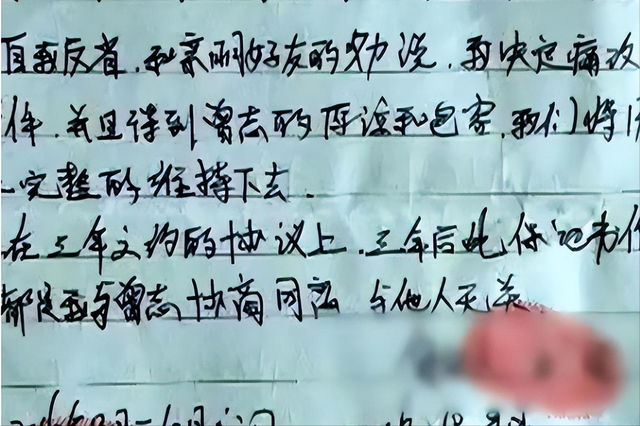 自我反省,和亲朋好友的劝说,我决定痛改
并且得到曾志的原谅和包容,我们将
完整的维持下去.
在三年文约的协议上.三年后此保证书作
都是我与曾志协商同意 与他人无关